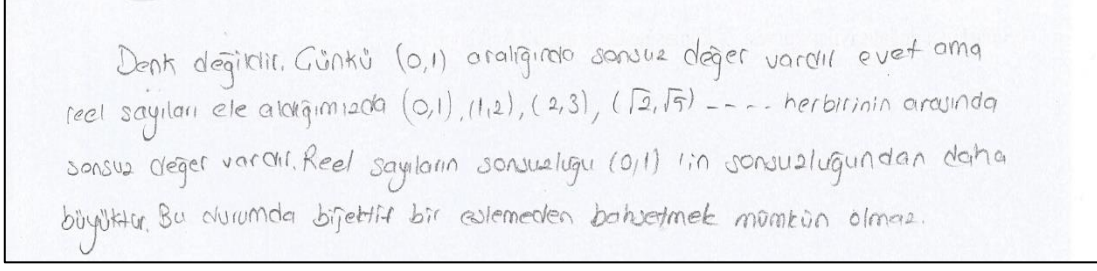 Denk değildir. Çünkü (0,1) aralığında sonsuz değer vardır evet ama
reel sayıları ele aldığımızda (0,1), (1,2), (2,3), (√2,√5) ---- herbirinin arasında
sonsuz değer vardır. Reel sayıların sonsuzluğu (0,1) 'in sonsuzluğundan daha
büyüktür. Bu durumda bijektif bir eşlemeden bahsetmek mümkün olmaz.